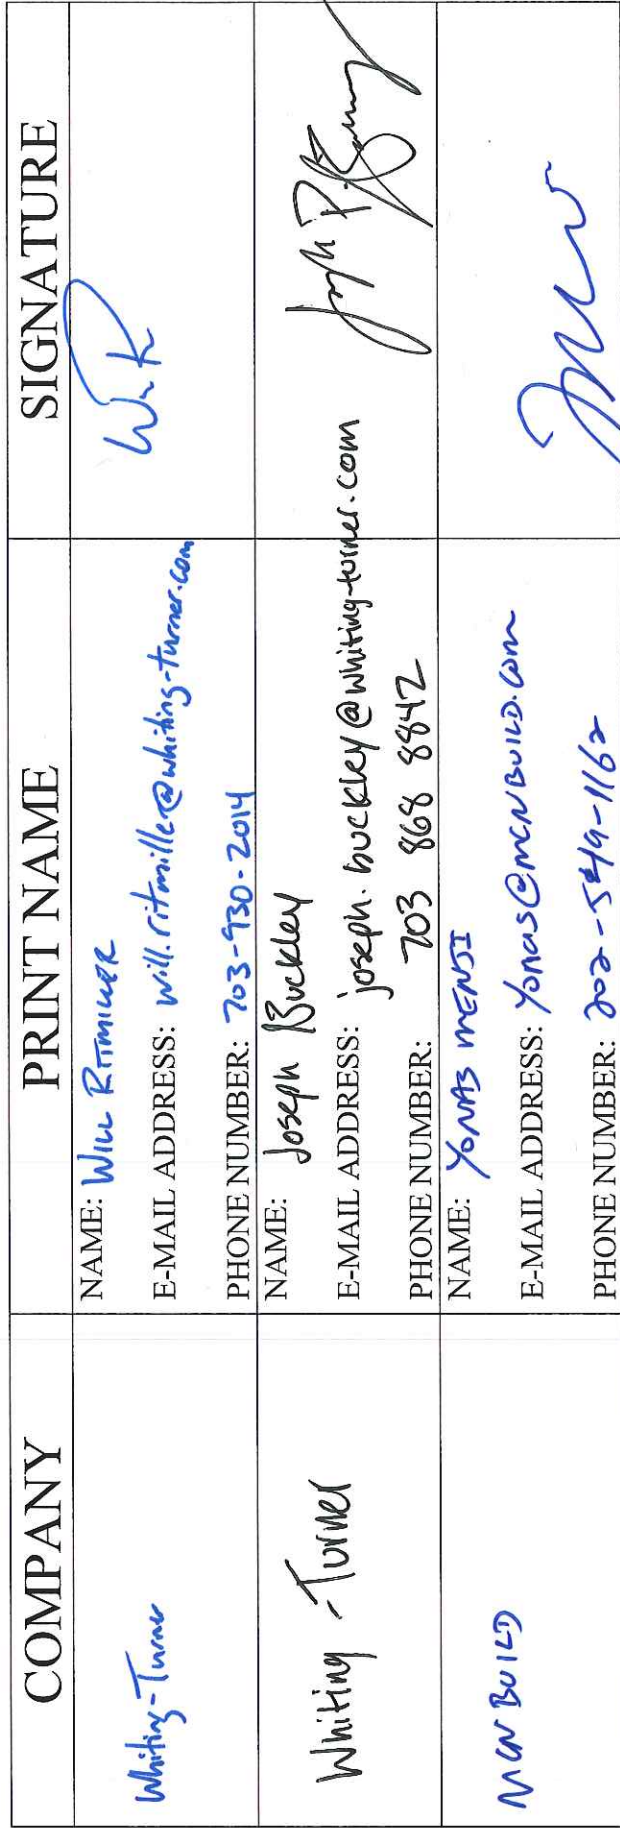 COMPANY PRINT NAME SIGNATURE
Whiting-Turner
NAME: Will Ritmiller
E-MAIL ADDRESS: will.ritmiller@whiting-turner.com
PHONE NUMBER: 703-930-2014
Whiting-Turner
NAME: Joseph Buckley
E-MAIL ADDRESS: joseph.buckley@whiting-turner.com
PHONE NUMBER: 703 868 8842
MCN BUILD
NAME: YONAS MENJI
E-MAIL ADDRESS: Yonas@MCNBUILD.com
PHONE NUMBER: 202-549-1162